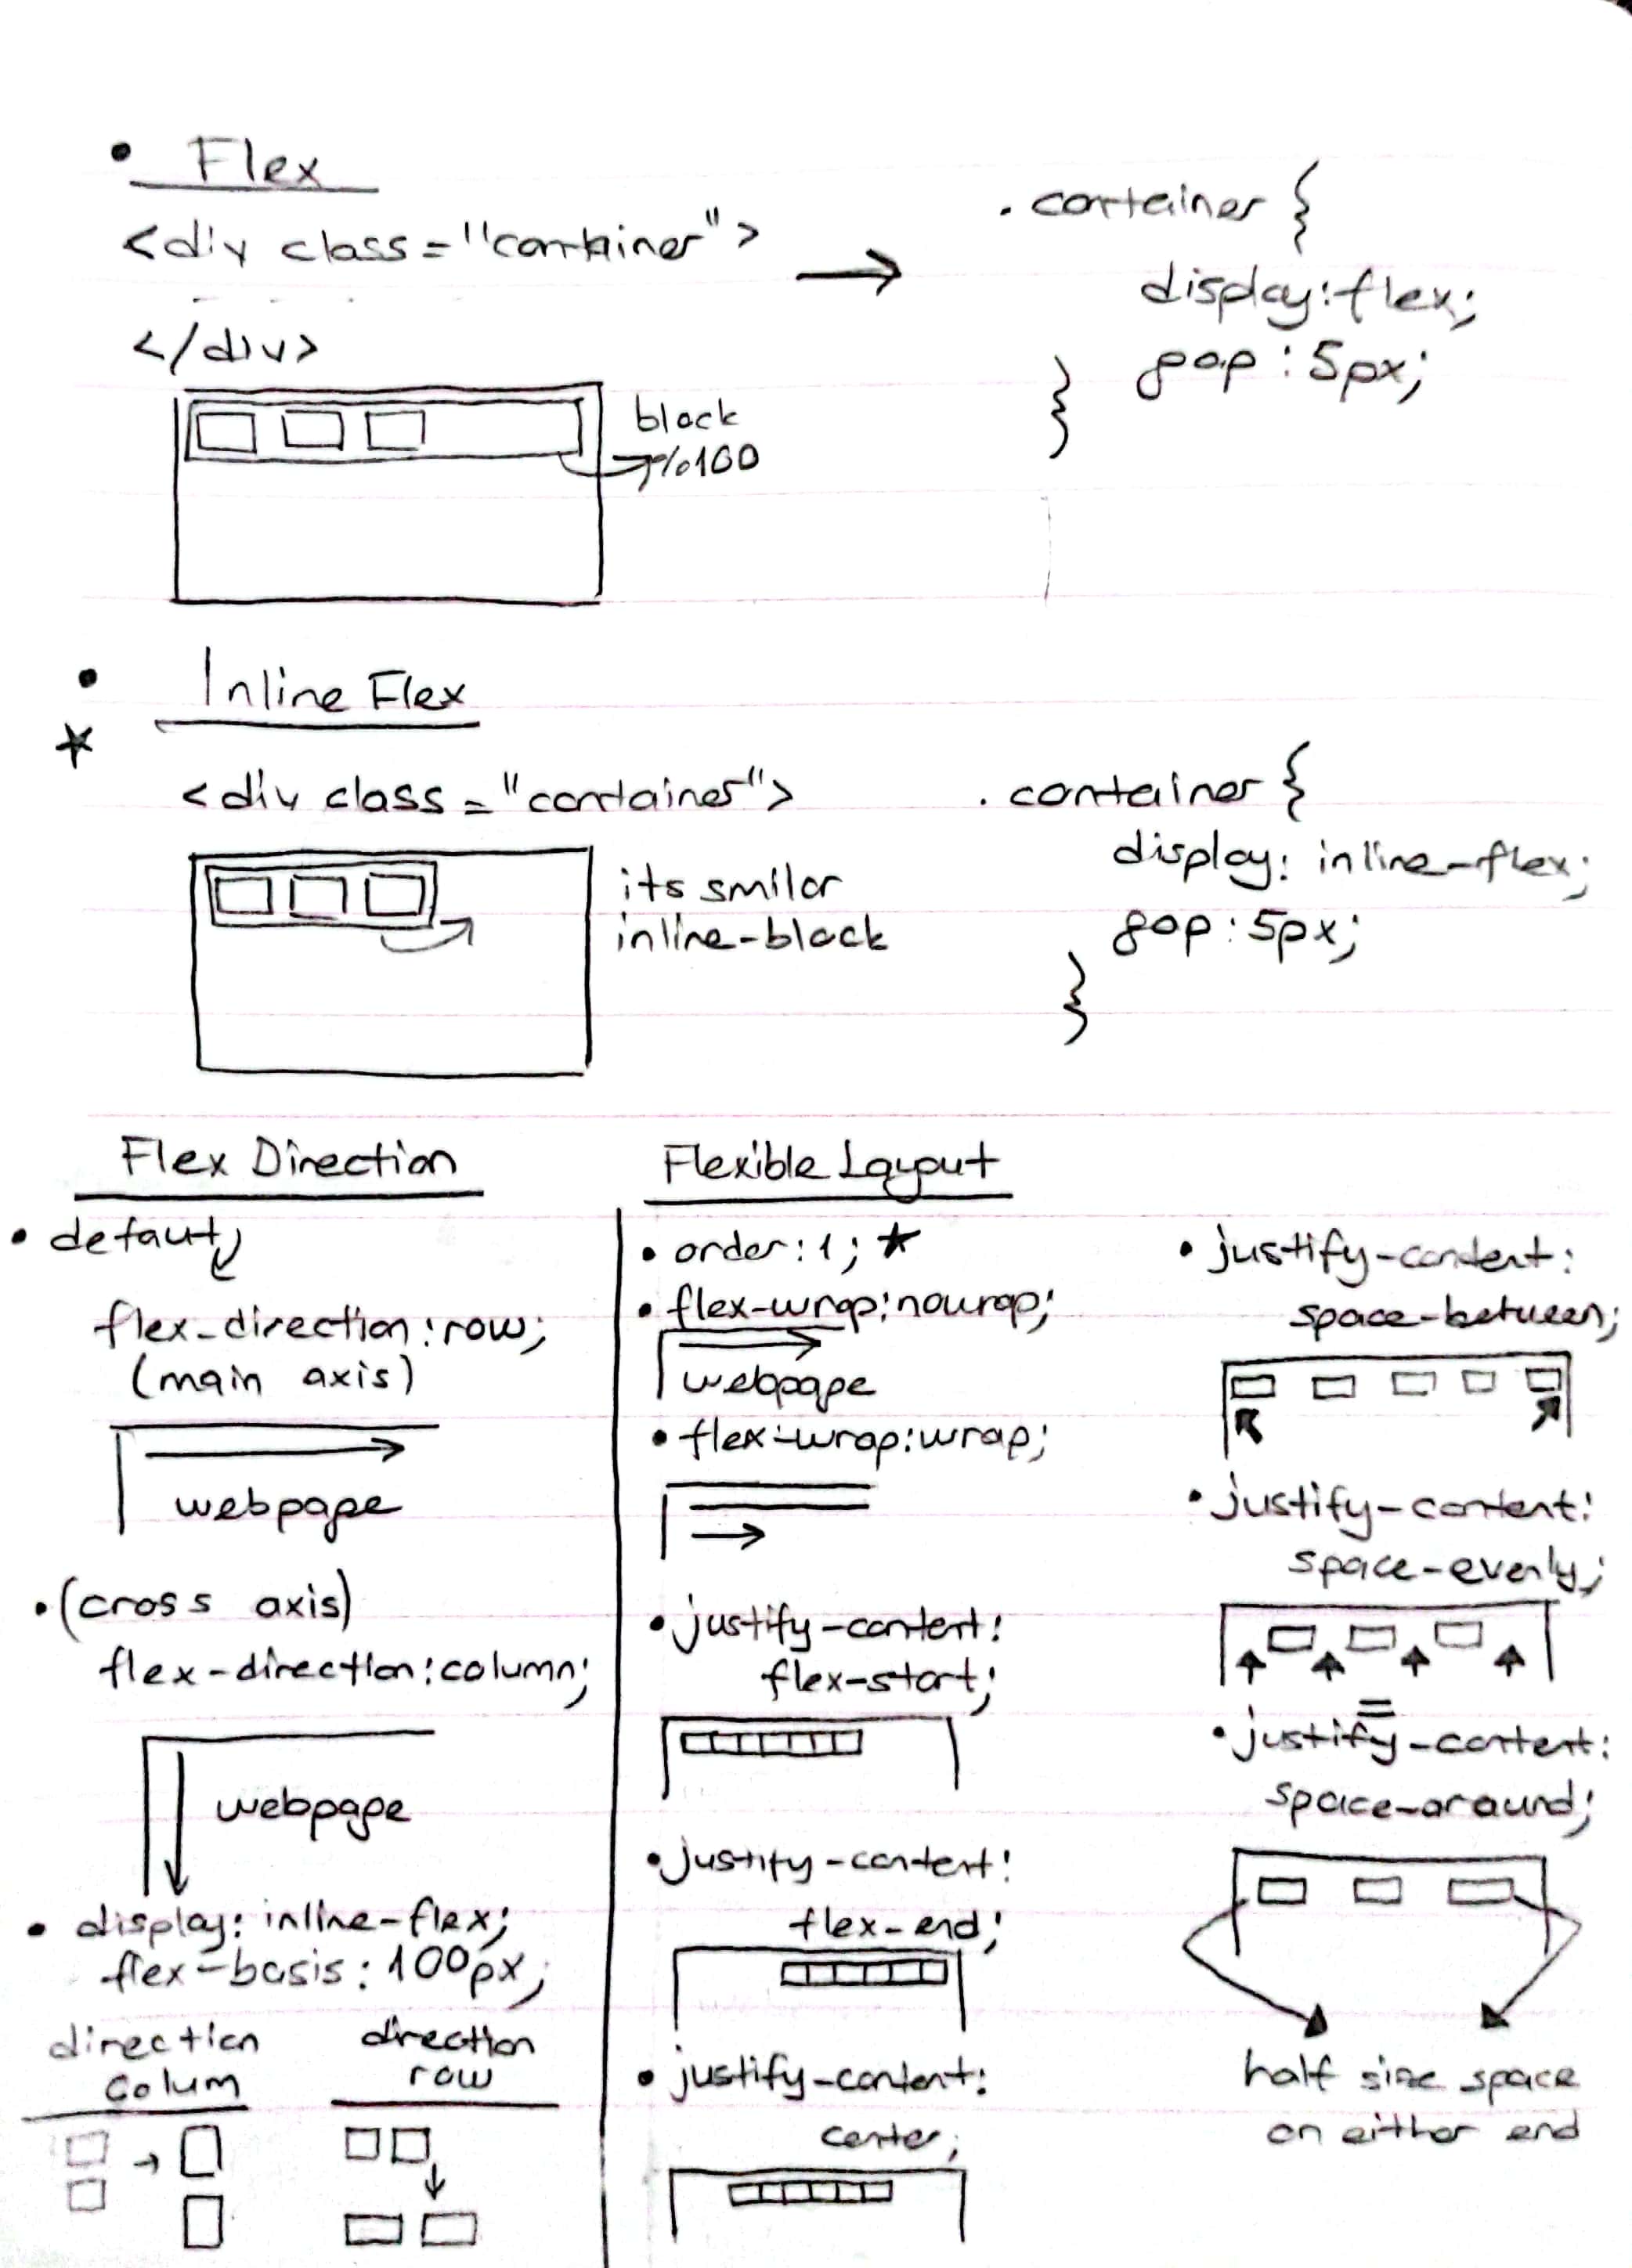 • Flex
<div class="container">
</div>
→
.container {
display:flex;
gap:5px;
}
block
%100
• Inline Flex
<div class="container">
.container {
display: inline-flex;
gap:5px;
}
its smilar
inline-block
Flex Direction
• defaut
flex-direction:row;
(main axis)
webpage
•(cross axis)
flex-direction:column;
webpage
• display: inline-flex;
flex-basis: 100px;
direction
colum
direction
row
Flexible Layout
• order:1;
• flex-wrap:nowrap;
webpage
• flex-wrap:wrap;
• justify-content:
flex-start;
• justify-content:
flex-end;
• justify-content:
center;
• justify-content:
space-between;
• justify-content:
space-evenly;
=
• justify-content:
space-around;
half size space
on either end